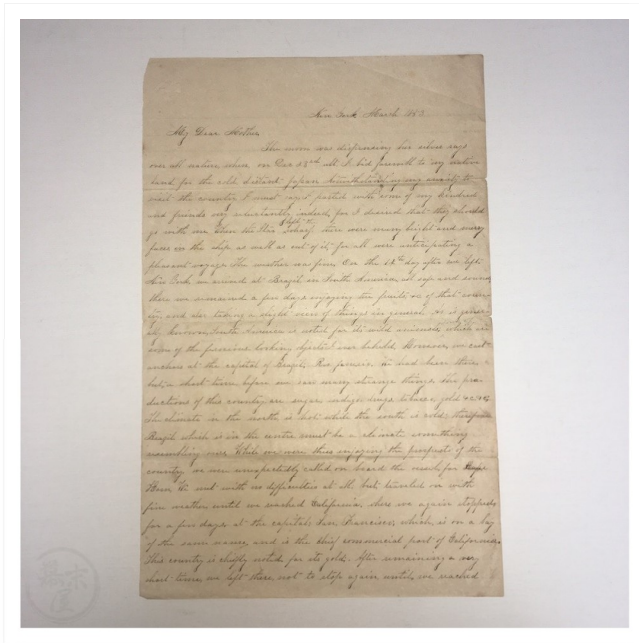 New York March 18
My Dear Mother
The moon was dispersing her silver rays
over all nature when on Dec 23rd ult. I bid farewell to my native
land for the old distant Japan Nonetheless in my anxiety to
visit the country, I must regret parted with some of my kindred
and friends very reluctantly indeed, for I desired that they should
go with me. When the Ship left the wharf, there were many bright and merry
faces in the ship as well as out of it, for all were anticipating a
pleasant voyage. The weather was fine. On the 12th day after we left
New York we arrived at Brazil in South America, all safe and sound,
there we remained a few days enjoying the fruits &c of that coun-
try, and also taking a slight view of things in general. As is gener-
ally known, South America is noted for its wild animals, which are
some of the ferocious looking I ever beheld. However, we cast
anchor at the capital of Brazil, Rio Janeiro. We had been there
but a short time before we saw many strange things. The pro-
ductions of this country are sugar indigo drugs tobacco gold &c &c
The climate in the north is hot while the south is cold therefore
Brazil which is in the centre must be a climate something
resembling ours. While we were thus enjoying the prospects of the
country we were unexpectedly called on board the vessel for Cape
Horn. We met with no difficulties at all, but traveled on with
fine weather until we reached California, where we again stopped
for a few days at the capital, San Francisco, which is on a bay
of the same name, and is the chief commercial part of California.
This country is chiefly noted for its gold. After remaining a very
short time, we left there not to stop again until we reached